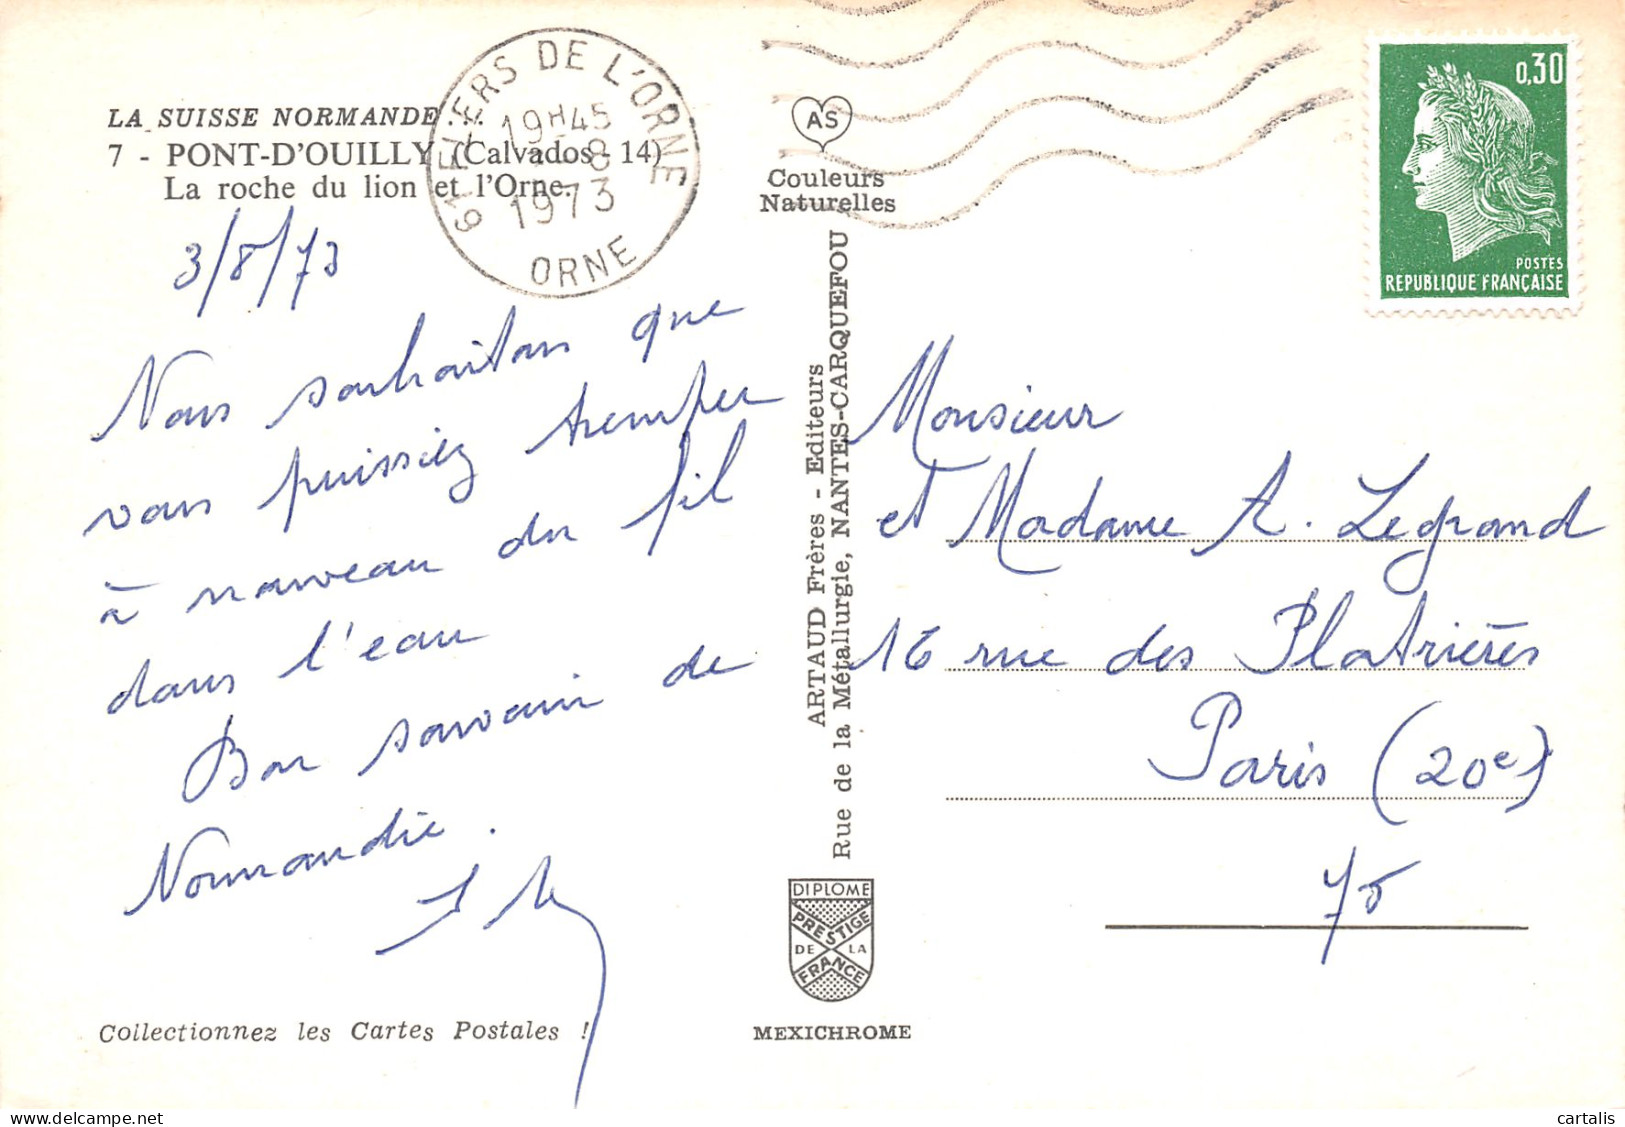 LA SUISSE NORMANDE
7 - PONT-D'OUILLY (Calvados - 14)
La roche du lion et l'Orne.
61 ATHIERS DE L'ORNE
19H45
8
1973
ORNE
3/8/73
Nous souhaitons que
vous puissiez tremper
à nouveau du fil
dans l'eau
Bon souvenir de
Normandie.
Collectionnez les Cartes Postales !
AS
Couleurs
Naturelles
ARTAUD Frères - Editeurs
Rue de la Métallurgie, NANTES-CARQUEFOU
DIPLOME
PRESTIGE
DE LA
FRANCE
MEXICHROME
0,30
POSTES
REPUBLIQUE FRANÇAISE
Monsieur
et Madame A. Legrand
16 rue des Platrières
Paris (20e)
75
cartalis